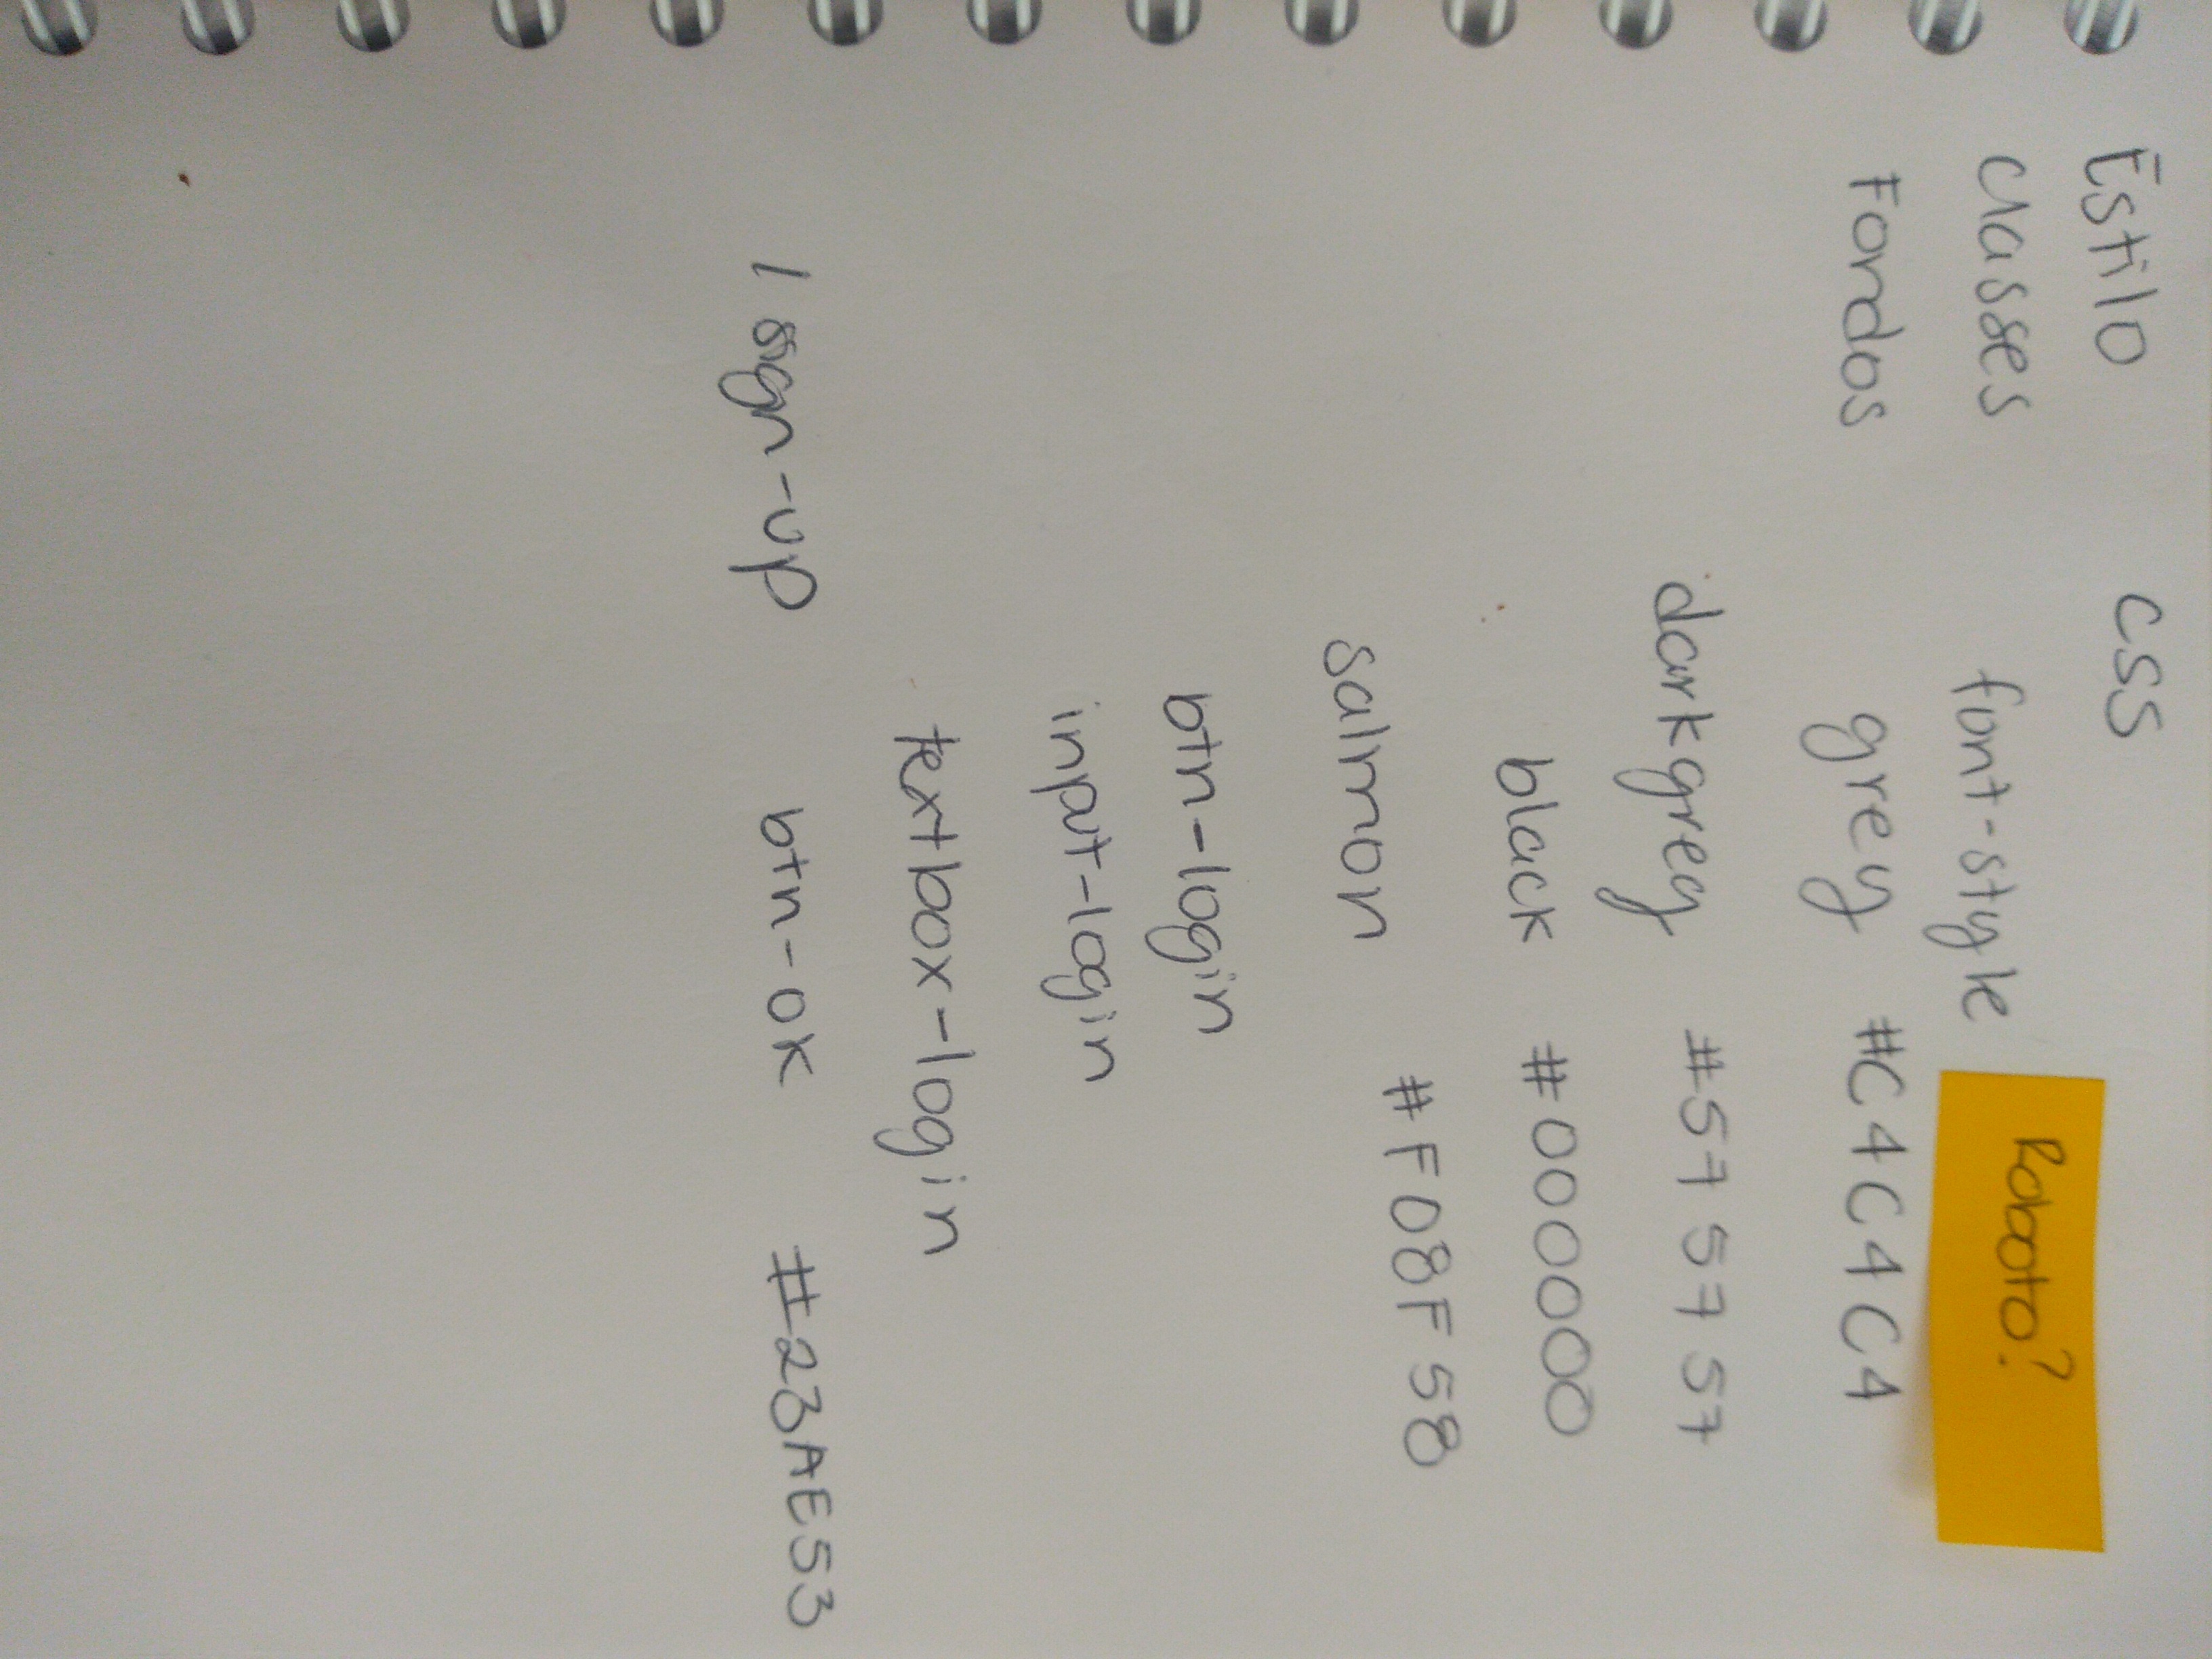 Estilo CSS
Roboto?
classes font-style
Fondos grey #C4C4C4
darkgrey #575757
black #000000
salmon #F08F58
btn-login
input-login
textbox-login
/ sign-up btn-ok #23AE53